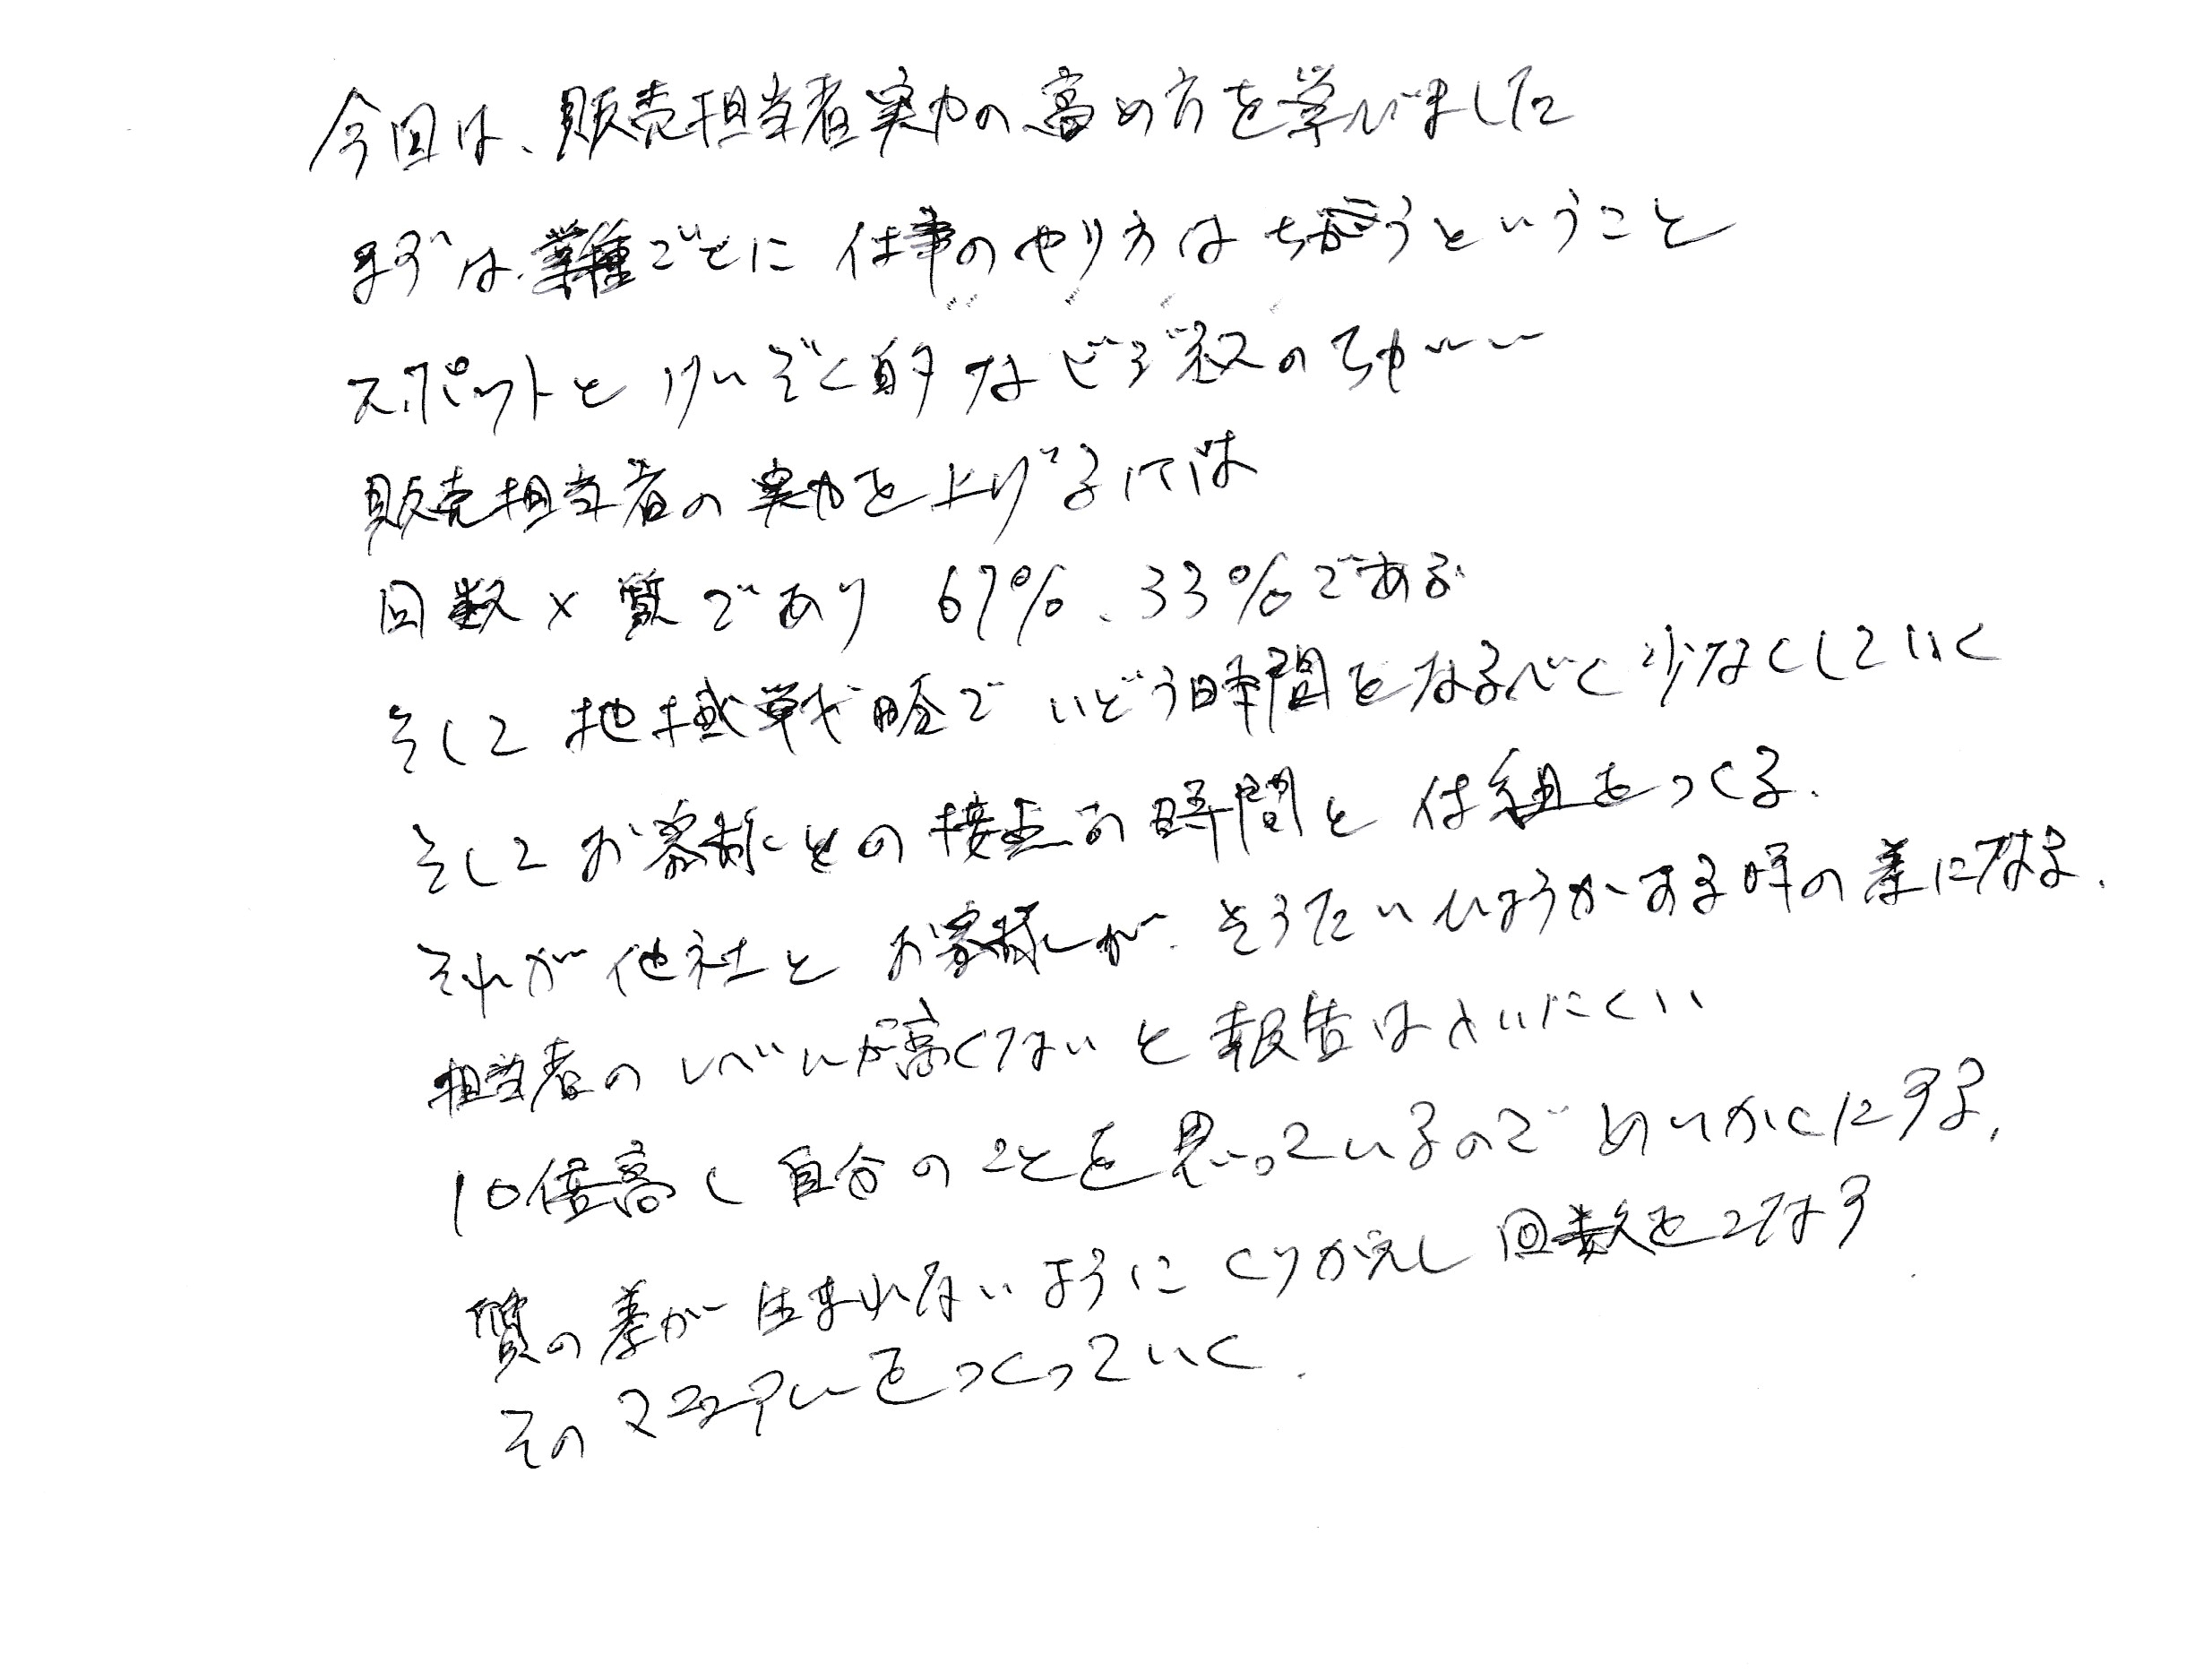 今回は、販売担当者実力の高め方を学びました
まずは、業種ごとに 仕事のやり方はちがうということ
スポットと けいぞく的なビジネスのちがい
販売担当者の実力を上げるには
回数×質であり 67%、33%である
そして地域戦略でいどう時間をなるべく少なくしていく
そしてお客様との接点の時間と仕組をつくる.
それが他社とお客様が、そうたいひょうかする時の差になる.
担当者のレベルが高くないと報告はいいにくい
10倍高く自分のことを思っているのでめいかくにする.
質の差が生まれないようにくりかえし回数をこなす
そのマニュアルをつくっていく.